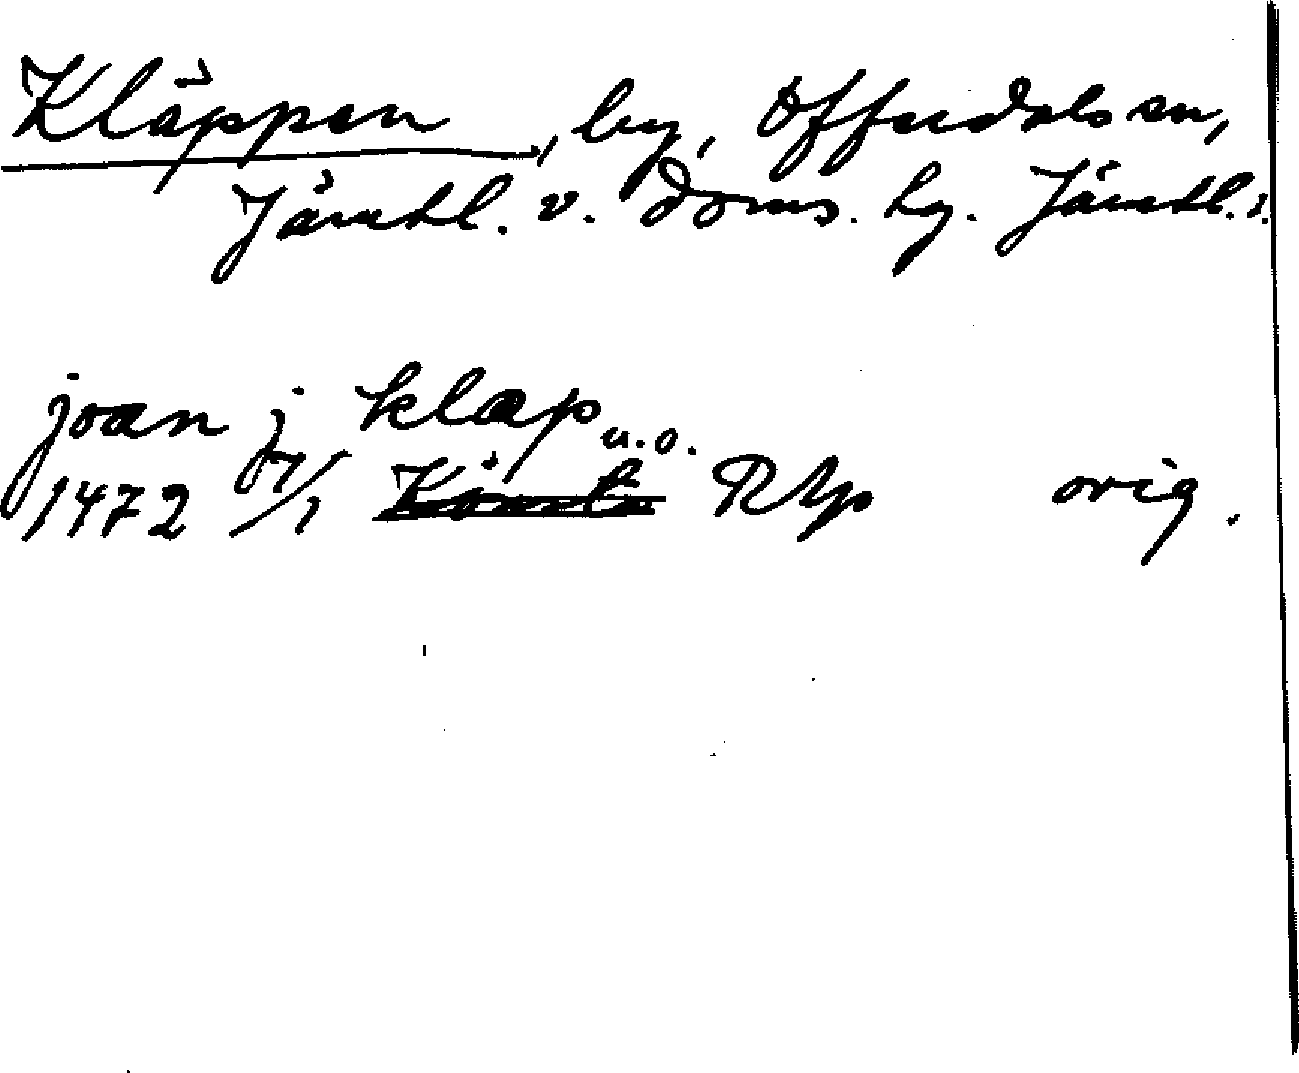 Kläppen, by, Offerdals sn,
Jämtl. v. doms. hg. Jämtl. l.
joan j klap u.o.
1472 17/1 RAp orig.